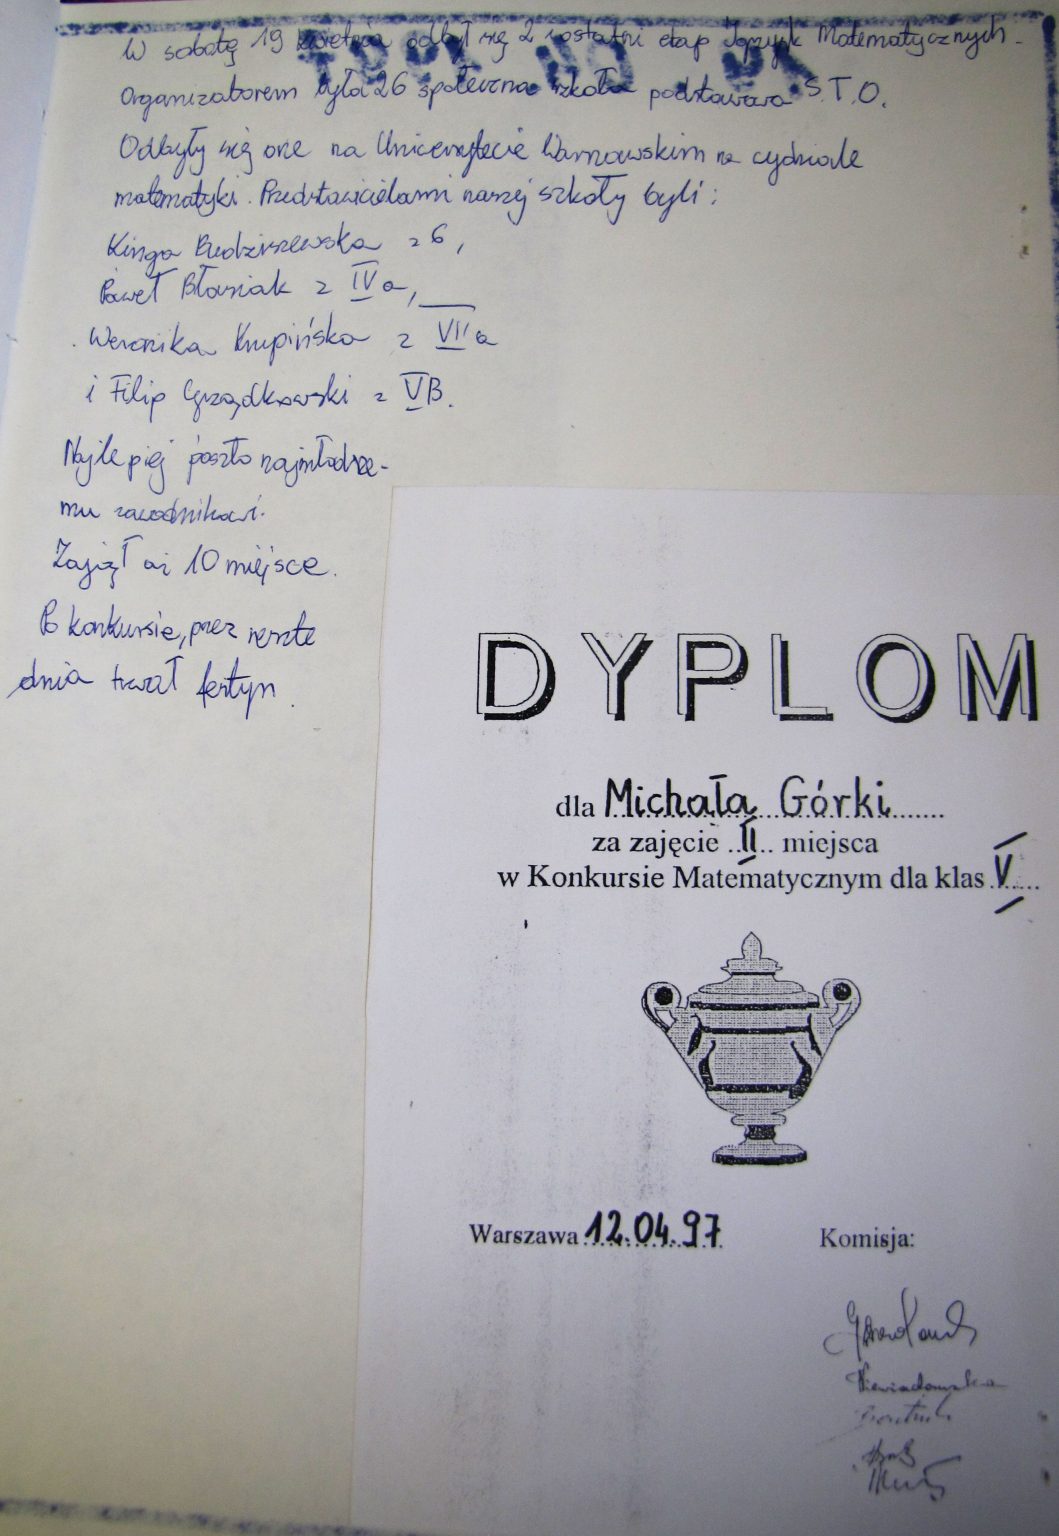 W sobotę 19 kwietnia odbył się 2 i ostatni etap Igrzysk Matematycznych.
Organizatorem była 26 społeczna szkoła podstawowa S.T.O.
Odbyły się one na Uniwersytecie Warszawskim na wydziale
matematyki. Przedstawicielami naszej szkoły byli:
Kinga Budziszewska z 6,
Paweł Błasiak z IV a,
Weronika Krupińska z VII a
i Filip Grządkowski z VB.
Najlepiej poszło najmłodsze-
mu zawodnikowi.
Zajął aż 10 miejsce.
Po konkursie, przez resztę
dnia trwał festyn.
DYPLOM
dla Michała Górki
za zajęcie II miejsca
w Konkursie Matematycznym dla klas V
Warszawa 12.04.97 Komisja: